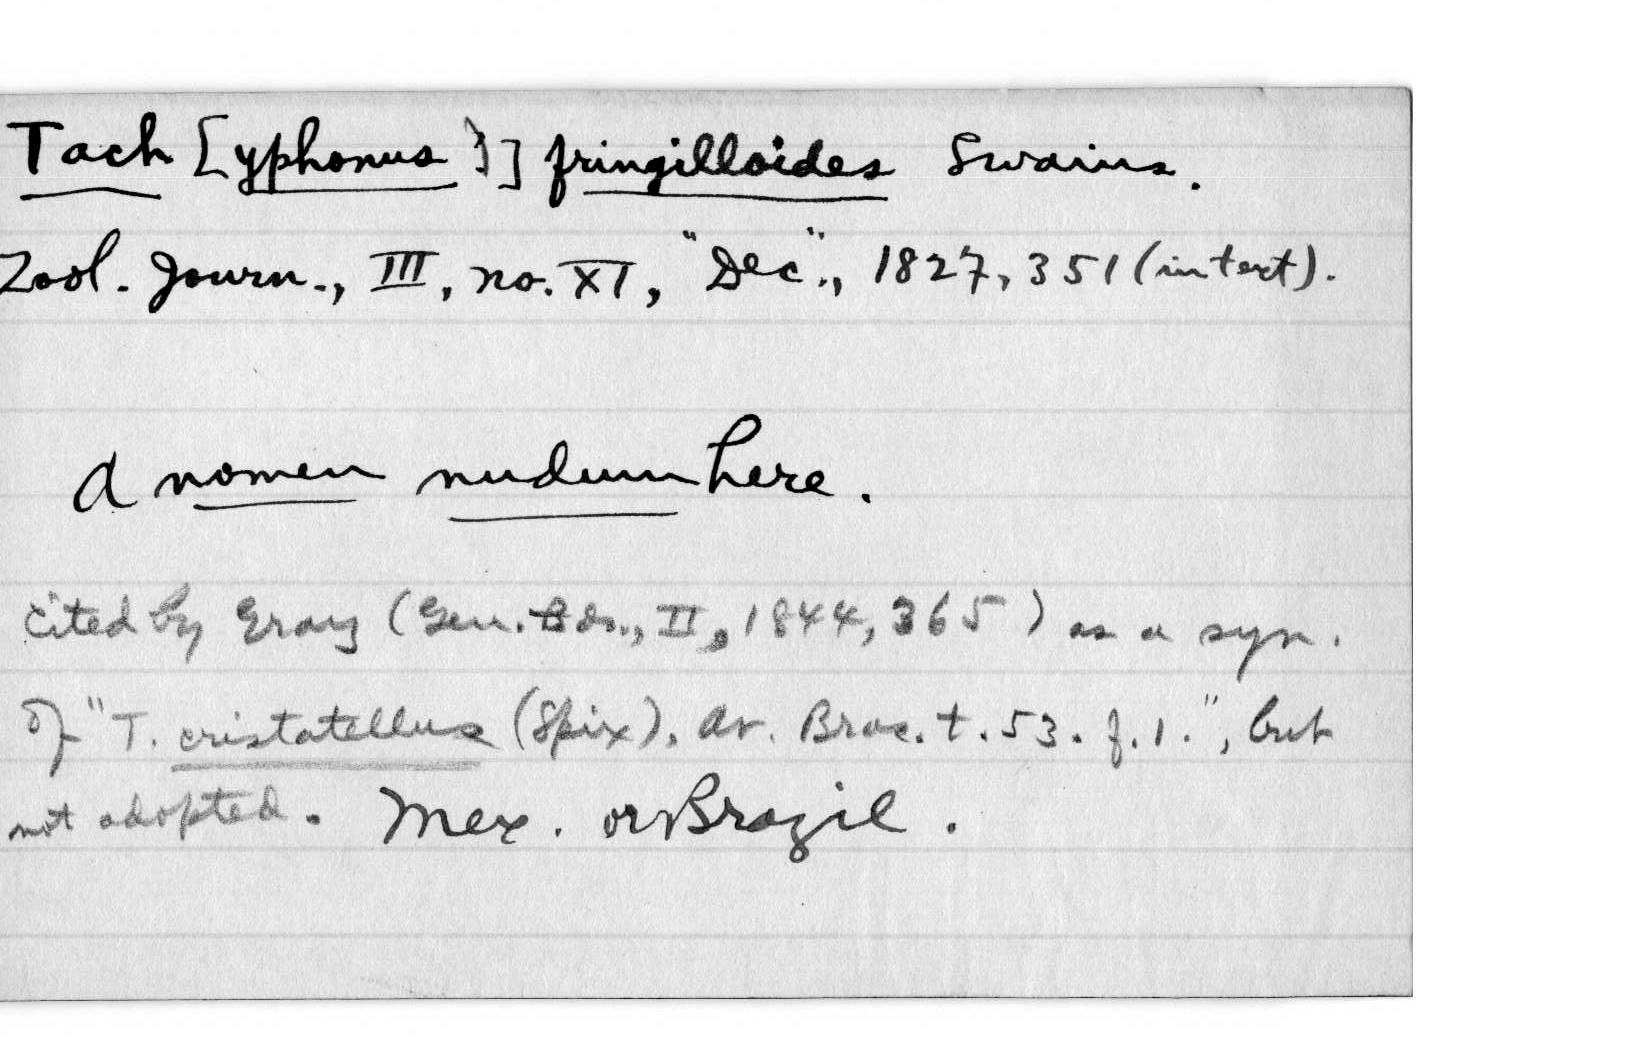 Tach [yphonus)] fringilloides Swains.
Zool. Journ., III, no. XI, "Dec"., 1827, 351 (in text).
A nomen nudum here.
Cited by Gray (Gen. Bds., II, 1844, 365) as a syn.
of "T. cristatellus (Spix), Av. Bras. t. 53. f. 1.", but
not adopted. Mex. or Brazil.